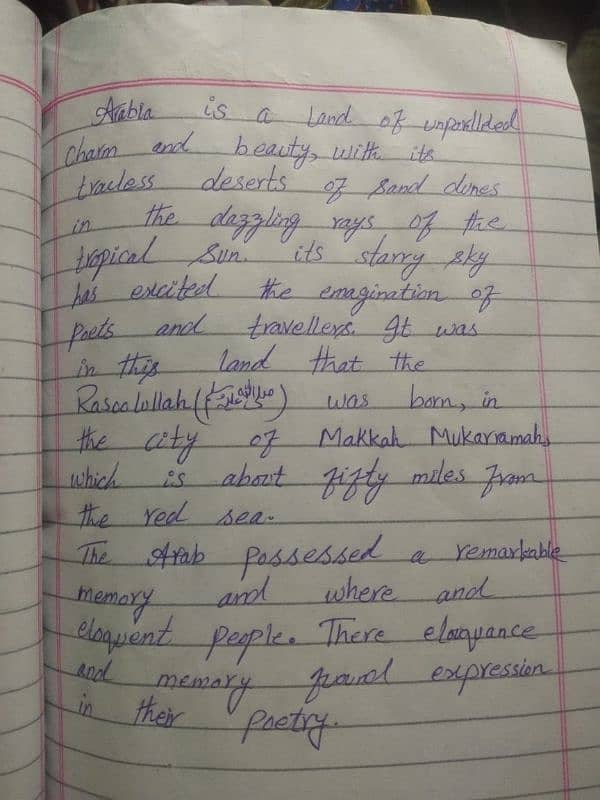 Arabia is a Land of unparlleled
Charm and beauty, with its
tracless deserts of sand dines
in the dazzling rays of the
tropical Sun. its starry sky
has excited the emagination of
Poets and travellers. It was
in this land that the
Rasoolullah (صلى الله عليه وسلم) was born, in
the city of Makkah Mukarramah,
which is about fifty miles from
the red sea.
The Arab possessed a remarkable
memory and where and
eloquent people. There eloquance
and memory found expression
in their poetry.